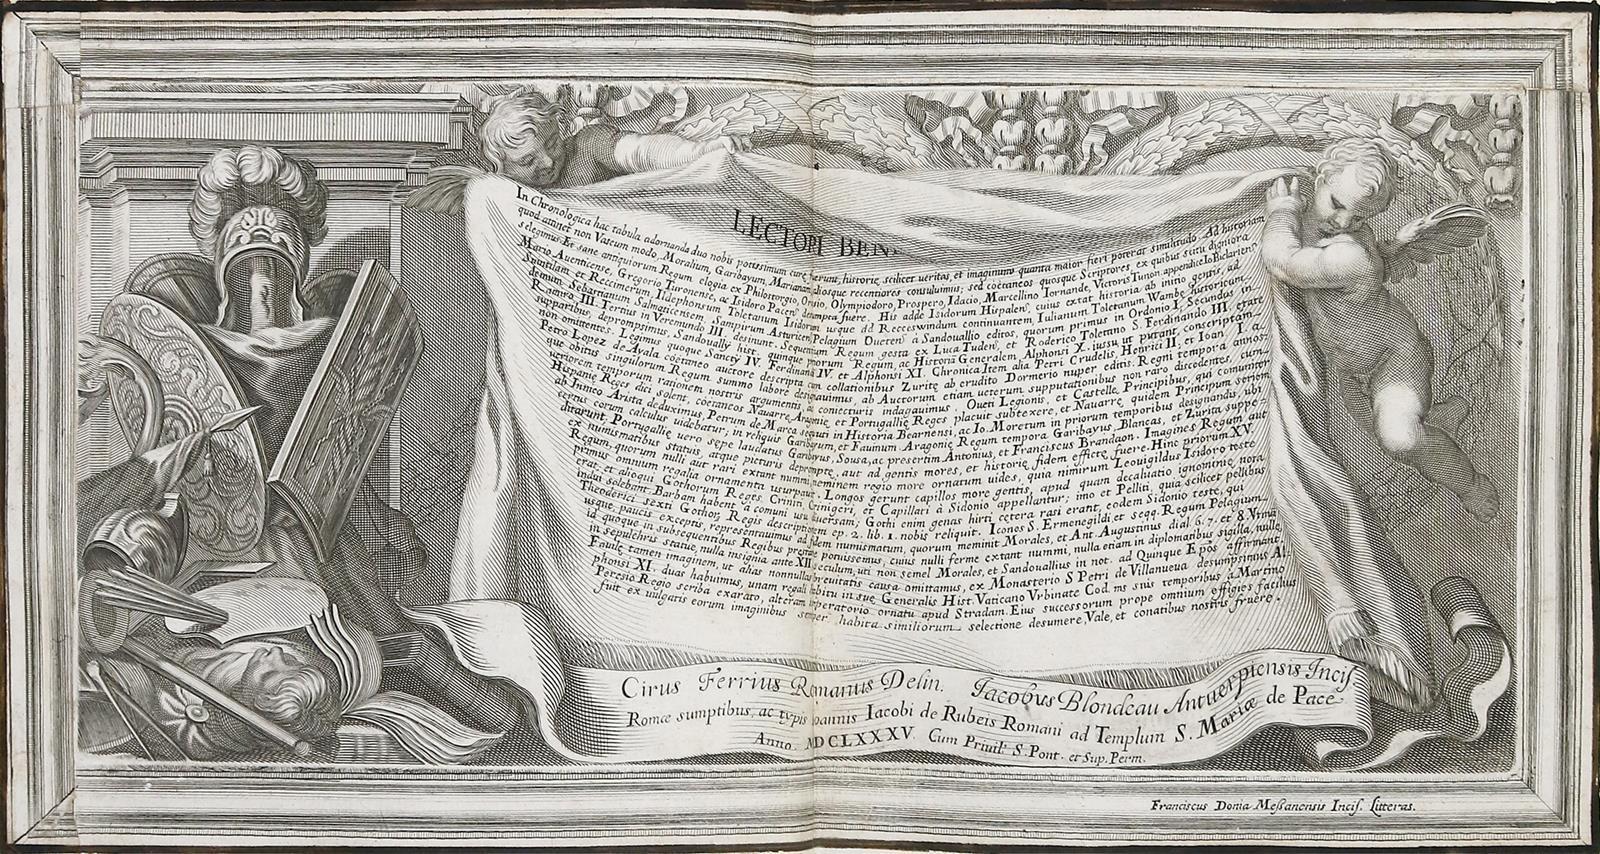 LECTORI BEN
In Chronologica hac tabula adornanda duo nobis potissimum curæ fuerunt, historiæ scilicet veritas, et imaginum quanta maior fieri poterat similitudo. Ad historiam
quod attinet non Vaseum modo, Moralium, Garibayum, Marianam aliosque recentiores consuluimus; sed coëtaneos quosque Scriptores, ex quibus scitu digniora
selegimus. Et sane antiquorum Regum elogia ex Philostorgio, Orosio, Olympiodoro, Prospero, Idacio, Marcellino, Iornande, Victoris Tunon. appendice, Io. Biclarien.
Mario Auenticense, Gregorio Turonense, ac Isidoro Pacen. deprompta fuere. His adde Isidorum Hispalen. cuius extat historia ab initio gentis, ad
Suintilam et Reccimerum, Ildephonsum Toletanum Isidorum usque ad Reccesvvindum continuantem, Iulianum Toletanum Wambæ historicum,
demum Sebastianum Salmaticensem, Sampirum Asturicen. Pelagium Oueten. à Sandouallio editos, quorum primus in Ordonio I. Secundus in
Ramiro III. Tertius in Veremundo III. desinunt. Sequentium Regum gesta ex Luca Tuden. et Roderico Toletano S. Ferdinando III. ætate
supparibus, deprompsimus, Sandoually hist. quinque priorum Regum, ac Historia Generalem, Alphonsi X. iussu, ut putant, conscriptam
non omittentes. Legimus quoque Sancty IV. Ferdinandi IV. et Alphonsi XI. Chronica. Item alia Petri Crudelis, Henrici II. et Ioan. I. a
Petro Lopez de Ayala coëtaneo auctore descripta cum collationibus Zuritæ ab erudito Dormerio nuper editis. Regni tempora annos-
que obitus singulorum Regum summo labore designauimus, ab Auctorum etiam ueterum supputationibus non raro discedentes, cum
ueriorem temporum rationem nostris argumentis, ac coniecturis indagauimus. Oueti Legionis, et Castellæ Principibus, qui communiter
Hispaniæ Reges dici solent, coëtaneos Nauarræ, Aragoniæ, et Portugalliæ Reges placuit subtexere, et Nauarræ quidem Principum seriem
ab Innico Arista deduximus, Petrum de Marca sequuti in Historia Bearnensi, ac Io. Moretum in priorum temporibus designandis, ubi
certus eorum calculus uidebatur, in reliquis Garibayum, et Fauinum. Aragoniæ Regum tempora Garibayus, Blancas, et Zurita suppe-
ditarunt, Portugalliæ uero sæpe laudatus Garibayus, Sousa, ac præsertim Antonius, et Franciscus Brandaon. Imagines Regum aut
ex numismatibus, statuis, atque picturis depromptæ, aut ad gentis mores, et historiæ fidem effictæ fuere. Hinc priorum XV.
Regum, quorum nulli aut rari extant nummi, neminem regio more ornatum uides, quia nimirum Leouigildus Isidoro teste
primus omnium regalia ornamenta usurpauit. Longos gerunt capillos more gentis, apud quam decaluatio ignominiæ nota
erat, et alioqui Gothorum Reges Criniti, Crinigeri, et Capillati à Sidonio appellantur; imo et Pelliti, quia scilicet pellibus
indui solebant. Barbam habent a comuni usu diuersam; Gothi enim genas hirti cetera rasi erant, eodem Sidonio teste, qui
Theoderici sexti Gothor. Regis descriptionem ep. 2. lib. 1. nobis reliquit. Iconos S. Ermenegildi, et seqq. Regum Pelagium
usque, paucis exceptis, repræsentauimus ad fidem numismatum, quorum meminit Morales, et Ant. Augustinus dial 6. 7. et 8. Vtrum
id quoque in subsequentibus Regibus præstare potuissemus, cuius nulli ferme extant nummi, nulla etiam in diplomatibus sigilla, nullæ
in sepulchris statuæ, nulla insignia ante XII. sæculum, uti non semel Morales, et Sandouallius in not. ad Quinque Epos affirmant,
Fauilæ tamen imaginem, ut alias nonnullas breuitatis causa omittamus, ex Monasterio S. Petri de Villanueua desumpsimus Al-
phonsi XI. duas habuimus, unam regali habitu in suæ Generalis Hist. Vaticano Vrbinate Cod. ms suis temporibus à Martino
Peresio Regio scriba exarato, alteram imperatorio ornatu apud Stradam. Eius successorum prope omnium effigies facilius
fuit ex uulgatis eorum imaginibus semper habita similiorum selectione desumere. Vale, et conatibus nostris fruere.
Cirus Ferrius Romanus Delin. Iacobus Blondeau Antuerpiensis Incis
Romæ sumptibus, ac typis Ioannis Iacobi de Rubeis Romani ad Templum S. Mariæ de Pace
Anno. MDCLXXXV. Cum Privil. S. Pont. et Sup. Perm.
Franciscus Donia Meßanensis Incis. Litteras.